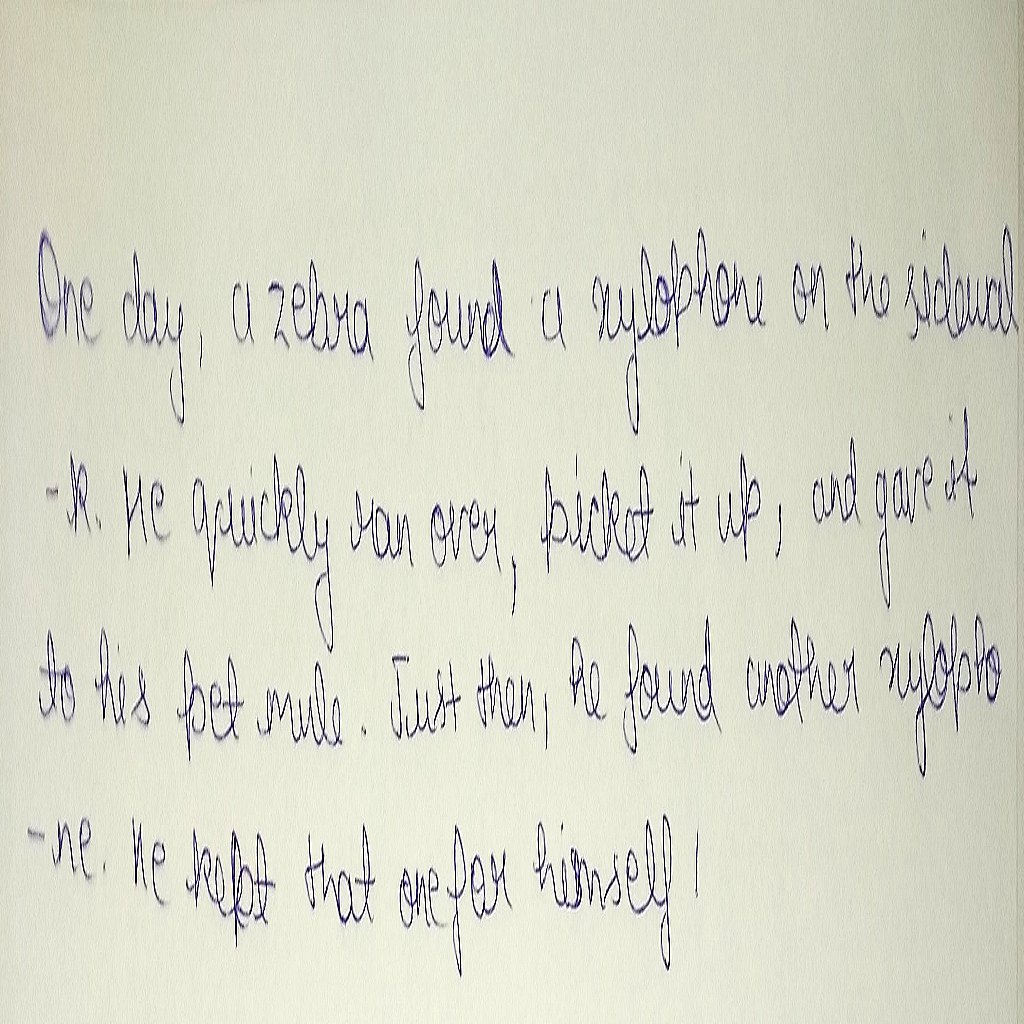 One day, a zebra found a xylophone on the sidewal
-k. He quickly ran over, picket it up, and gave it
to his pet mule. Just then, he found another xylopho
-ne. He kept that one for himself!